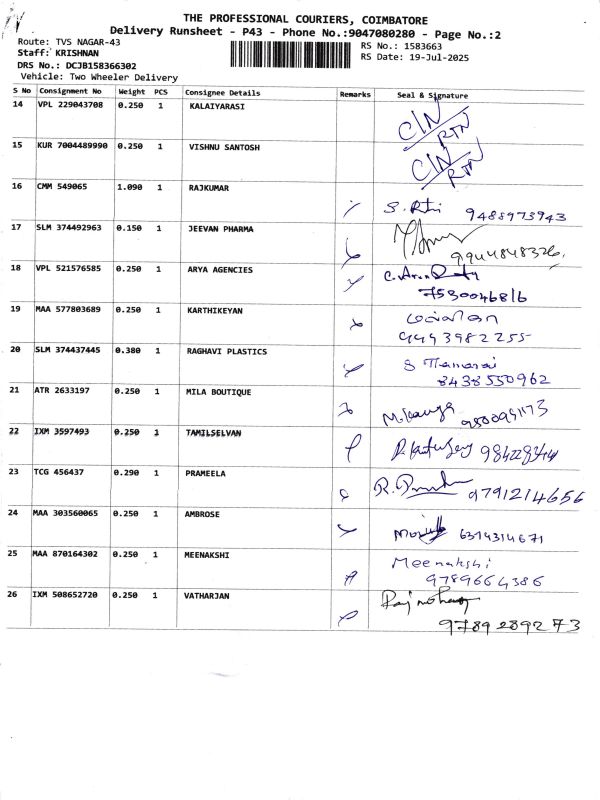 THE PROFESSIONAL COURIERS, COIMBATORE
Delivery Runsheet - P43 - Phone No.:9047080280 - Page No.:2
Route: TVS NAGAR-43
Staff: KRISHNAN
DRS No.: DCJB158366302
Vehicle: Two Wheeler Delivery
RS No.: 1583663
RS Date: 19-Jul-2025
S No Consignment No Weight PCS Consignee Details Remarks Seal & Signature
14 VPL 229043708 0.250 1 KALAIYARASI CIN/RTN
15 KUR 7004489990 0.250 1 VISHNU SANTOSH CIN/RTN
16 CMM 549065 1.090 1 RAJKUMAR 9488973943
17 SLM 374492963 0.150 1 JEEVAN PHARMA 9944848326
18 VPL 521576585 0.250 1 ARYA AGENCIES 7530046816
19 MAA 577803689 0.250 1 KARTHIKEYAN 9443982255
20 SLM 374437445 0.380 1 RAGHAVI PLASTICS 8438550962
21 ATR 2633197 0.250 1 MILA BOUTIQUE
22 IXM 3597493 0.250 1 TAMILSELVAN
23 TCG 456437 0.290 1 PRAMEELA 9791214656
24 MAA 303560065 0.250 1 AMBROSE 6374314671
25 MAA 870164302 0.250 1 MEENAKSHI Meenakshi
9789664386
26 IXM 508652720 0.250 1 VATHARJAN
9789289273